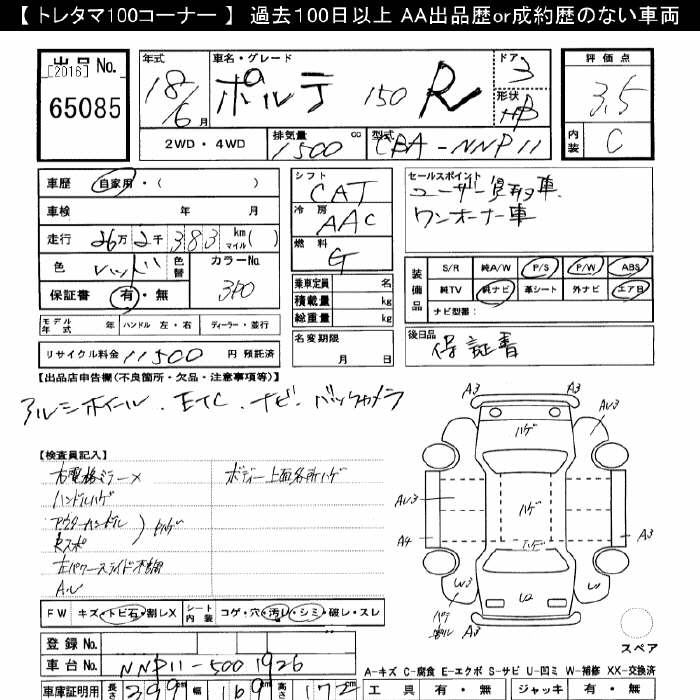 【 トレタマ100コーナー 】 過去100日以上 AA出品歴or成約歴のない車両
出品 No.
[2016]
65085
年式
18/6 月
車名・グレード
ポルテ 150 R
ドア
3
形状
HB
評価点
3.5
内装
C
2WD・4WD
排気量
1500 cc
型式
CBA-NNP11
車歴 自家用・( )
車検 年 月
走行 26万 2千 383 km マイル ( )
色 レッド 色替 カラーNo
保証書 有・無 3P0
モデル年式 年 ハンドル 左・右 ディーラー・並行
リサイクル料金 11500 円 預託済
シフト
CAT
冷房
AAC
燃料
G
乗車定員 名
積載量 kg
総重量 kg
名変期限
月 日
セールスポイント
ユーザー買取車.
ワンオーナー車
装備品
S/R 純A/W P/S P/W ABS
純TV 純ナビ 革シート 外ナビ エアB
ナビ型番:
後日品
保証書
【出品店申告欄(不良箇所・欠品・注意事項等)】
アルミホイール. ETC. ナビ. バックカメラ
【検査員記入】
ボディー上面各所ハゲ
ハンドルハゲ
アウターハンドル
A.ル
F W キズ・トビ石・割レX シート内装 コゲ・穴・汚レ・シミ・破レ・スレ
登録 No.
車台 No. NNP11-5001926
車庫証明用 長さ 399 幅 169 高さ 172
A3
A3
ハゲ
AU3
AU3
ハゲ
A4
A3
ハゲ
W3
U2
A3
スペア
A-キズ C-腐食 E-エクボ S-サビ U-凹ミ W-補修 XX-交換済
工具 有・無 ジャッキ 有・無